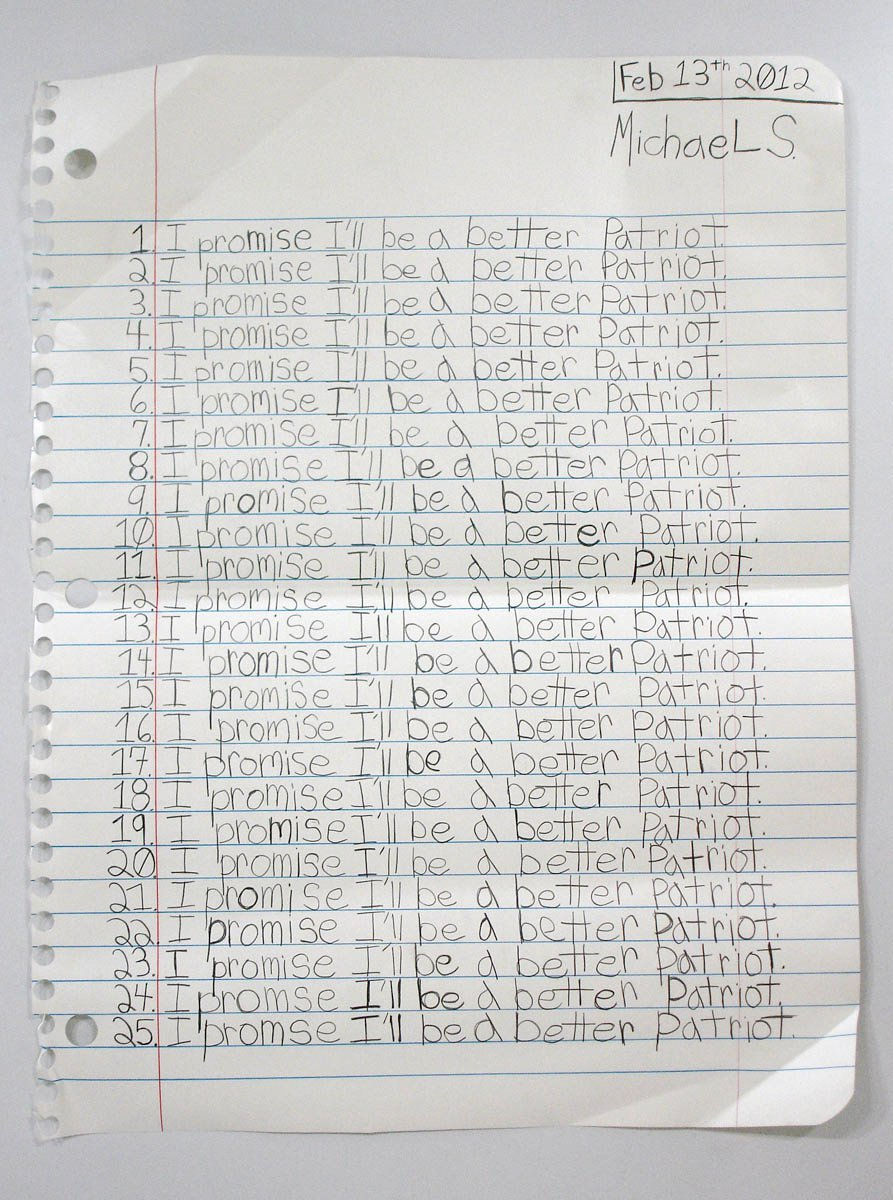 Feb 13th 2012
Michael S.
1. I promise I'll be a better Patriot.
2. I promise I'll be a better Patriot.
3. I promise I'll be a better Patriot.
4. I promise I'll be a better Patriot.
5. I promise I'll be a better Patriot.
6. I promise I'll be a better Patriot.
7. I promise I'll be a better Patriot.
8. I promise I'll be a better Patriot.
9. I promise I'll be a better Patriot.
10. I promise I'll be a better Patriot.
11. I promise I'll be a better Patriot.
12. I promise I'll be a better Patriot.
13. I promise I'll be a better Patriot.
14. I promise I'll be a better Patriot.
15. I promise I'll be a better Patriot.
16. I promise I'll be a better Patriot.
17. I promise I'll be a better Patriot.
18. I promise I'll be a better Patriot.
19. I promise I'll be a better Patriot.
20. I promise I'll be a better Patriot.
21. I promise I'll be a better Patriot.
22. I promise I'll be a better Patriot.
23. I promise I'll be a better Patriot.
24. I promse I'll be a better Patriot.
25. I promse I'll be a better Patriot.